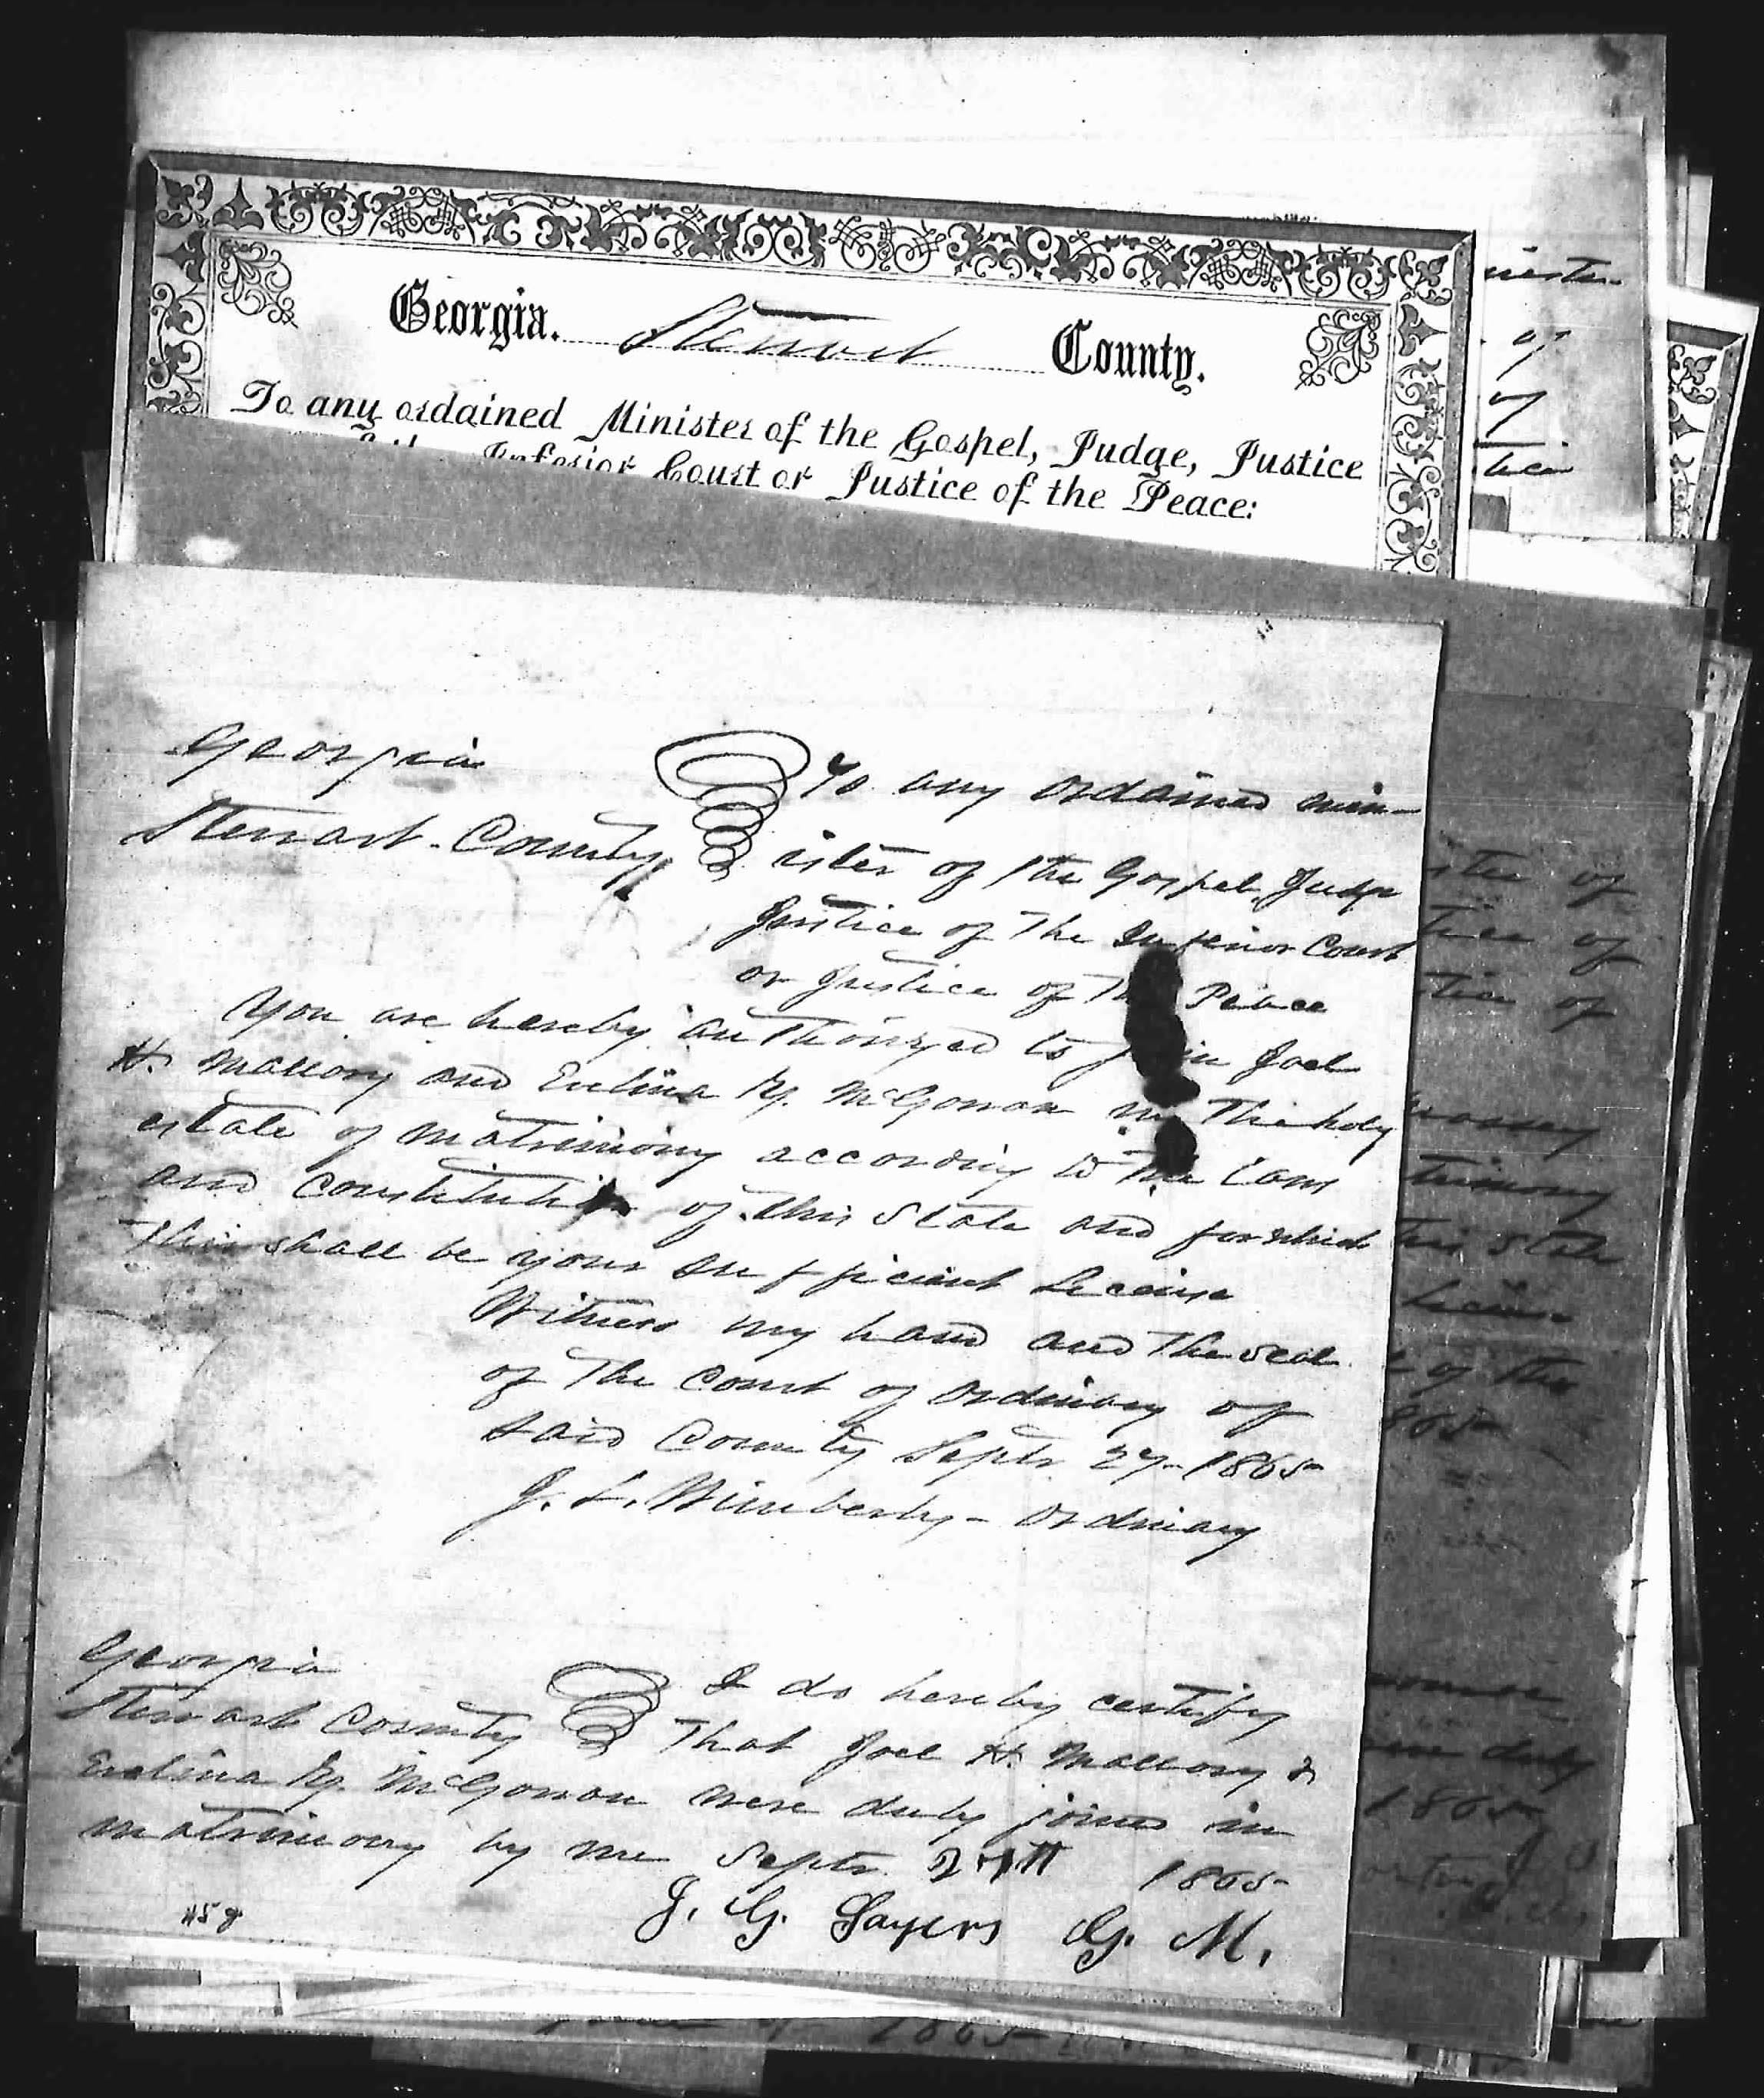 Georgia. Stewart County.
To any ordained Minister of the Gospel, Judge, Justice
Inferior Court or Justice of the Peace:
Georgia
To any ordained min-
Stewart County
ister of the Gospel, Judge
Justice of the Inferior Court
or Justice of the Peace
You are hereby authorized to join Joel
H. Mallory and Evelina McGowan in The holy
estate of matrimony according to the laws
and constitution of this State and for which
This shall be your sufficient License
Witness my hand and the seal
of The Court of ordinary of
said County Septr 27 1865
J. L. Wimberly - Ordinary
Georgia
I do hereby certify
Stewart County
That Joel H. Mallory &
Evelina McGowan were duly joined in
matrimony by me Septr 27th 1865
J. G. Sayers G. M.
ster of
tice of
tice of
trimony
this state
of the
865
duly
1865
1865